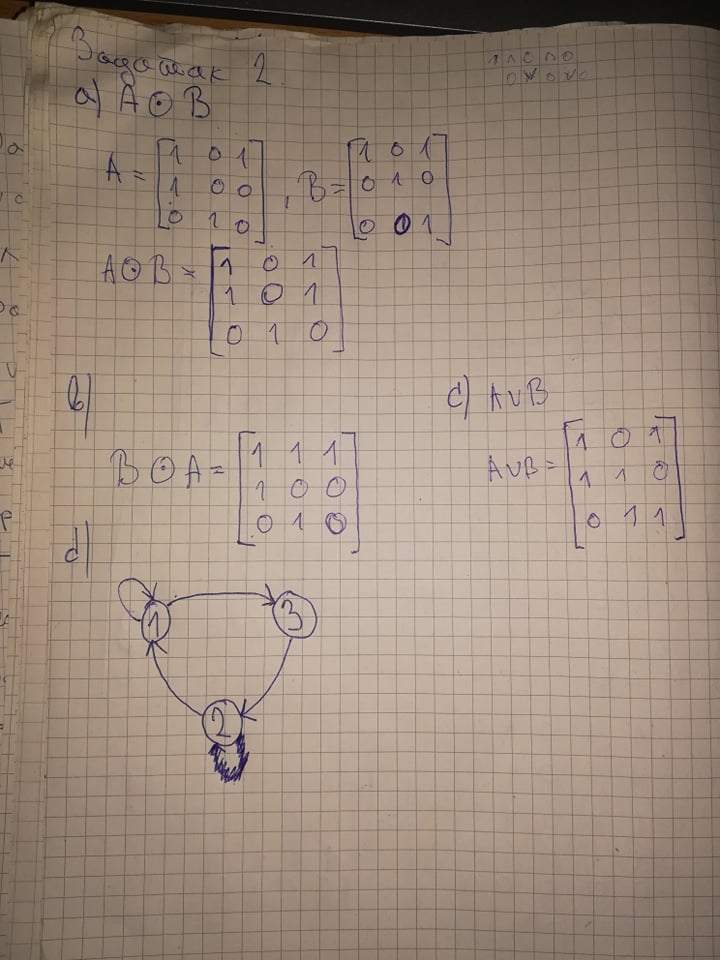 Задатак 2.
а) A ⊙ B
A = [1 0 1
1 0 0
0 1 0] , B = [1 0 1
0 1 0
0 0 1]
A ⊙ B = [1 0 1
1 0 1
0 1 0]
b)
B ⊙ A = [1 1 1
1 0 0
0 1 0]
c) A ∨ B
A ∨ B = [1 0 1
1 1 0
0 1 1]
d)
1
3
2